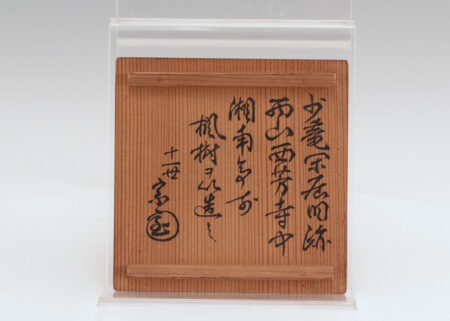 少菴居旧跡
西山西芳寺中
湘南亭前
楓樹ヲ以造之
十一世 宗室